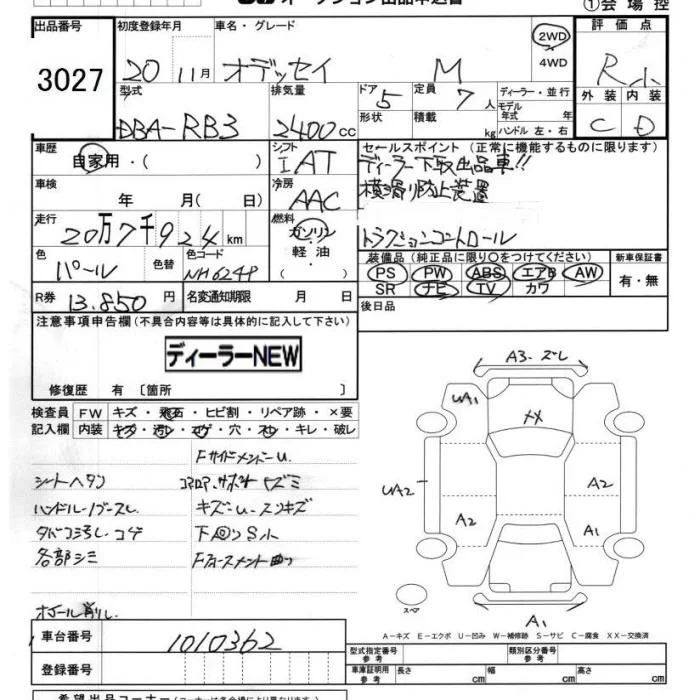 ①会場控
出品番号 初度登録年月 車名・グレード 評価点
3027 20 11月 オデッセイ M 2WD 4WD R小
型式 排気量 ドア 5 定員 7人 ディーラー・並行 外装 内装
形状 積載 kg モデル年式 年 ハンドル 左・右
DBA-RB3 2400cc C D
車歴 自家用・( ) シフト IAT
セールスポイント(正常に機能するものに限ります)
ディーラー下取出品車!!
横滑り防止装置
トラクションコントロール
車検 年 月( 日) 冷房 AAC
走行 20万7千924km 燃料 ガソリン 軽油・( )
色 パール 色替 色コード NH624P
装備品(純正品に限り○をつけてください) 新車保証書
PS PW ABS エアB AW 有・無
SR ナビ TV カワ
R券 13.850円 名変通知期限 月 日 後日品
注意事項申告欄(不具合内容等は具体的に記入して下さい)
ディーラーNEW
修復歴 有〔箇所 〕
検査員 FW キズ・飛石・ヒビ割・リペア跡・×要
記入欄 内装 キズ・汚レ・コゲ・穴・スレ・キレ・破レ
シートヘタリ
ハンドル・ノブスレ
タバコ汚し・コゲ
各部シミ
キズU・スリキズ
下回りS小
A3・ズレ
UA1
XX
UA2
A2
A2
A1
スペア
A1
A-キズ E-エクボ U-凹み W-補修跡 S-サビ C-腐食 XX-交換済
車台番号 1010362
型式指定番号 参考 類別区分番号 参考
登録番号
車庫証明用 参考 長さ cm 幅 cm 高さ cm
希望出品コーナー